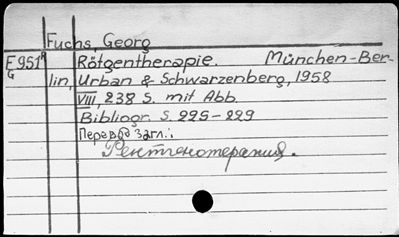 Fuchs, Georg
E951⁹ Rötgentherapie. München-Ber-
G lin, Urban & Schwarzenberg, 1958
VIII, 238 S. mit Abb.
Bibliogr. S. 225-229
Перевод загл.:
Рентгенотерапия.